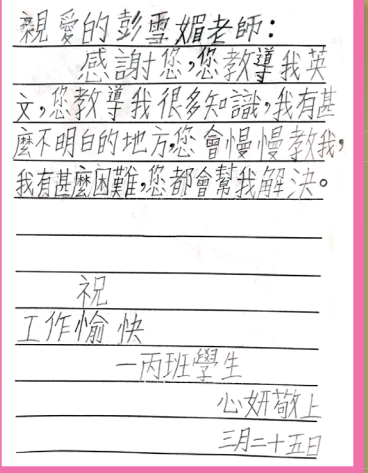 親愛的彭雪媚老師：
感謝您，您教導我英
文，您教導我很多知識，我有甚
麼不明白的地方，您會慢慢教我，
我有甚麼困難，您都會幫我解決。
祝
工作愉快
一丙班學生
心妍敬上
三月二十五日